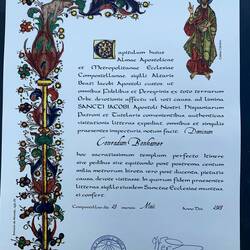 Capitulum huius
Almae Apostolicae et
Metropolitanae Ecclesiae
Compostellanae sigilli Altaris
Beati Jacobi Apostoli custos ut
omnibus Fidelibus et Peregrinis ex toto terrarum
Orbe devotionis affectu vel voti causa ad limina
SANCTI IACOBI Apostoli Nostri Hispaniarum
Patroni et Tutelaris convenientibus authenticas
visitationis litteras expediat omnibus et singulis
praesentes inspecturis notum facit Dominum
hoc sacratissimum templum perfecto Itinere
sive pedibus sive equitando post postrema centum
milia metrorum birota vero post ducenta pietatis
causa devote visitasse In quorum fidem praesentes
litteras sigillo eiusdem Sanctae Ecclesiae munitas
ei confert
Compostellae die mensis Anno Dni